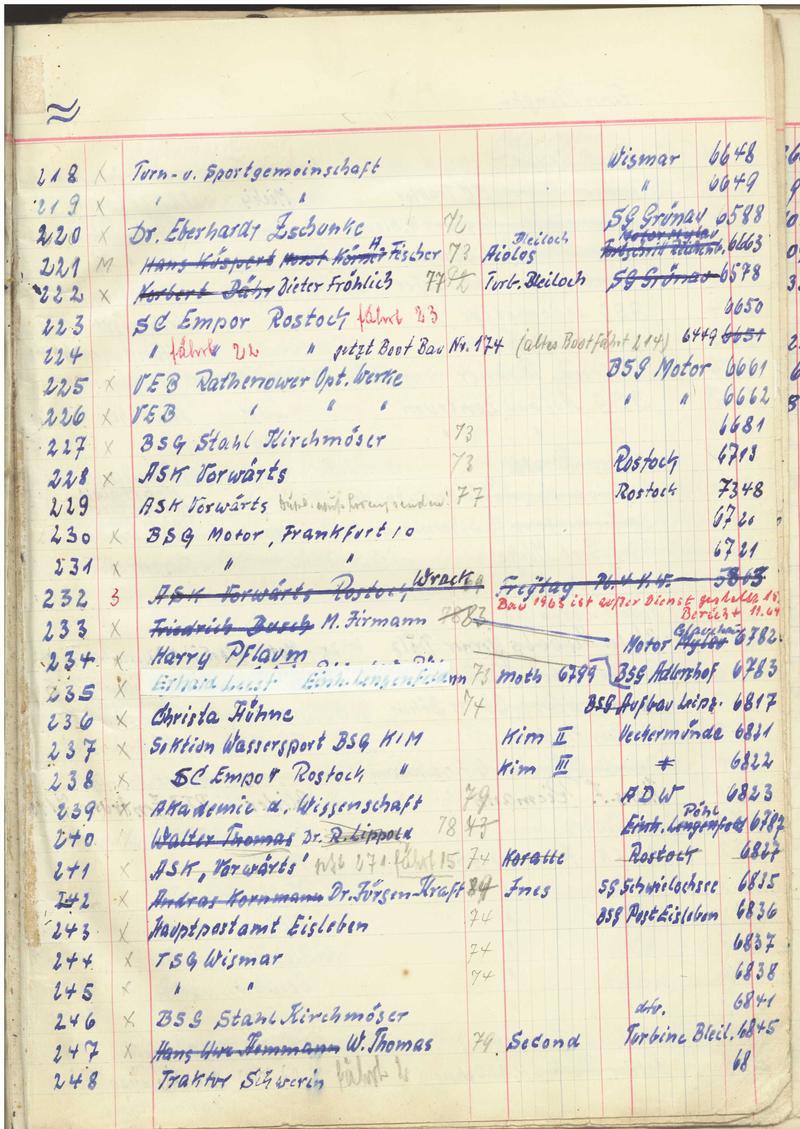 218 x Turn- u. Sportgemeinschaft Wismar 6648
219 x " " " 6649
220 x Dr. Eberhardt Zschunke 72 SG Grünau 6588
221 M Hans Küspert Horst Körner A. Fischer 73 Aiolos Bleiloch 6663
222 x Norbert Bähr Dieter Fröhlich 77 Turb. Bleiloch SG Grünau 6578
223 SC Empor Rostock fährt 23 6650
224 " fährt 22 " jetzt Boot Bau Nr. 174 (altes Boot fährt 214) 6449 6651
225 x VEB Rathenower Opt. Werke BSG Motor 6661
226 x VEB " " " " " 6662
227 x BSG Stahl Kirchmöser 73 6681
228 x ASK Vorwärts 73 Rostock 6713
229 ASK Vorwärts 77 Rostock 7348
230 x BSG Motor, Frankfurt /O 6720
231 x " " 6721
232 3 ASK Vorwärts Rostock Wrack Freytag 5363
Bau 1963 ist außer Dienst gestellt
Bericht 11.64
233 x Friedrich Busch M. Firmann 83 Motor 6782
234 x Harry Pflaum
235 x Einh. Lengenfeld 73 Moth 6799 BSG Adlershof 6783
236 x Christa Hühne 74 BSG Aufbau Leipz. 6817
237 x Sektion Wassersport BSG KIM Kim II Ueckermünde 6821
238 x SC Empor Rostock " Kim III 6822
239 x Akademie d. Wissenschaft 79 ADW 6823
240 Walter Thomas Dr. R. Lippold 78 Einh. Lengenfeld Pöhl 6787
241 x ASK "Vorwärts" fährt 15 74 Koralle Rostock 6827
242 x Andras Kornmann Dr. Jürgen Kraft Ines SG Schwielochsee 6835
243 x Hauptpostamt Eisleben 74 BSG Post Eisleben 6836
244 x TSG Wismar 74 6837
245 x " " 74 6838
246 x BSG Stahl Kirchmöser 6841
247 x Hans Uwe Hemmann W. Thomas 79 Second Turbine Bleil. 6845
248 Traktor Schwerin 68